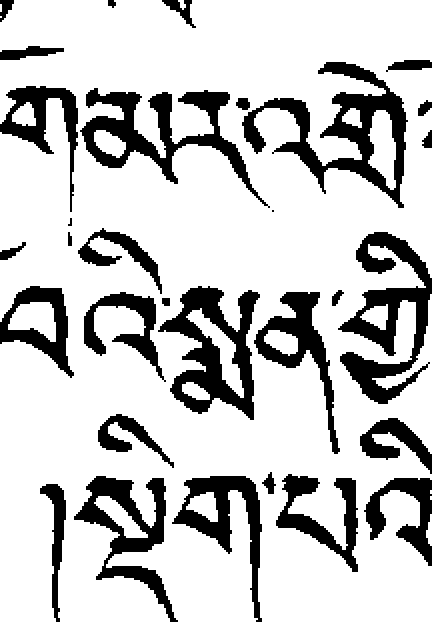 ག མར་འགྲོ་
བའི་སྨན་གྱི
།སྡིག་པའི